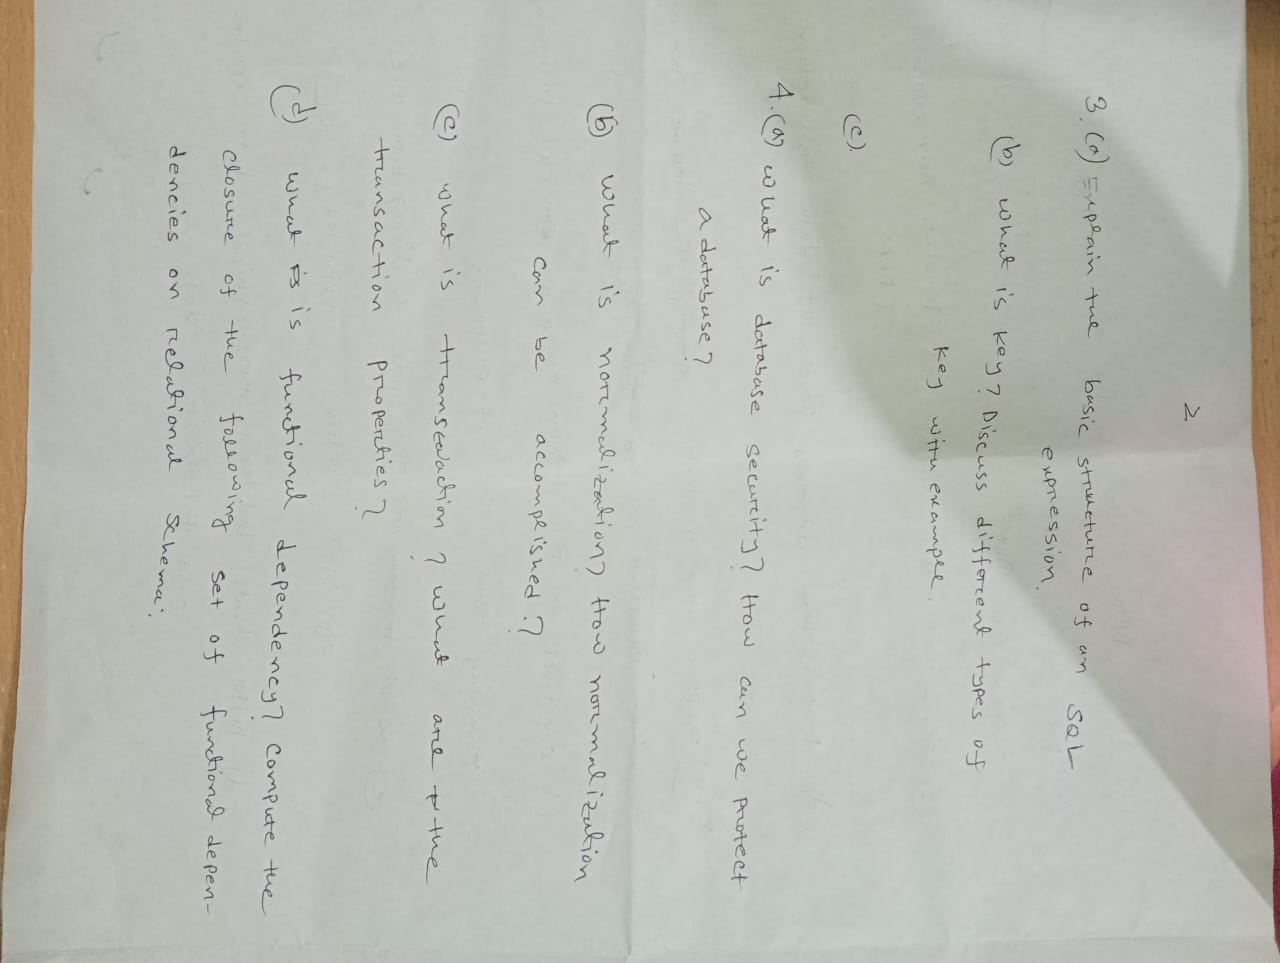 2
3. (a) Explain the basic structure of an SQL
expression.
(b) what is key? Discuss different types of
key with example.
(c)
4. (a) what is database security? How can we protect
a database?
(b) what is normalization? How normalization
can be accomplished?
(c) what is transaction? what are the
transaction properties?
(d) what is is functional dependency? compute the
closure of the following set of functional depen-
dencies on relational schema.